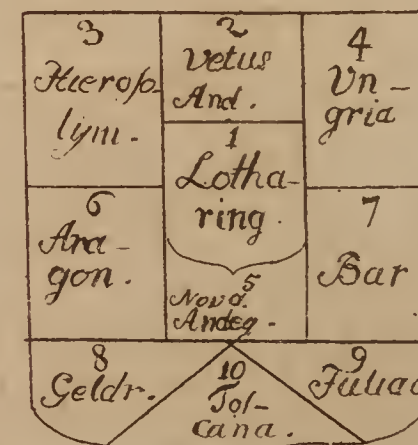 3
Hieroſo-
lym.
2
Vetus
And.
4
Vn-
gria
1
Lotha-
ring.
6
Ara-
gon.
5
Nova.
Andeg.
7
Bar
8
Geldr.
10
Toſ-
cana.
9
Juliac